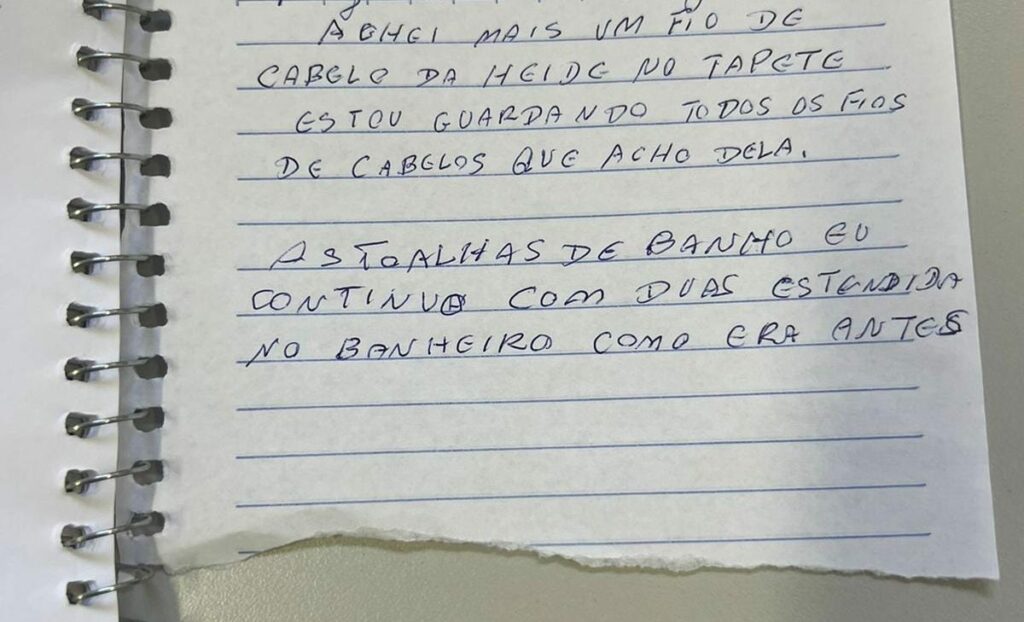 ACHEI MAIS UM FIO DE
CABELO DA HEIDE NO TAPETE
ESTOU GUARDANDO TODOS OS FIOS
DE CABELOS QUE ACHO DELA.
AS TOALHAS DE BANHO EU
CONTINUO COM DUAS ESTENDIDA
NO BANHEIRO COMO ERA ANTES